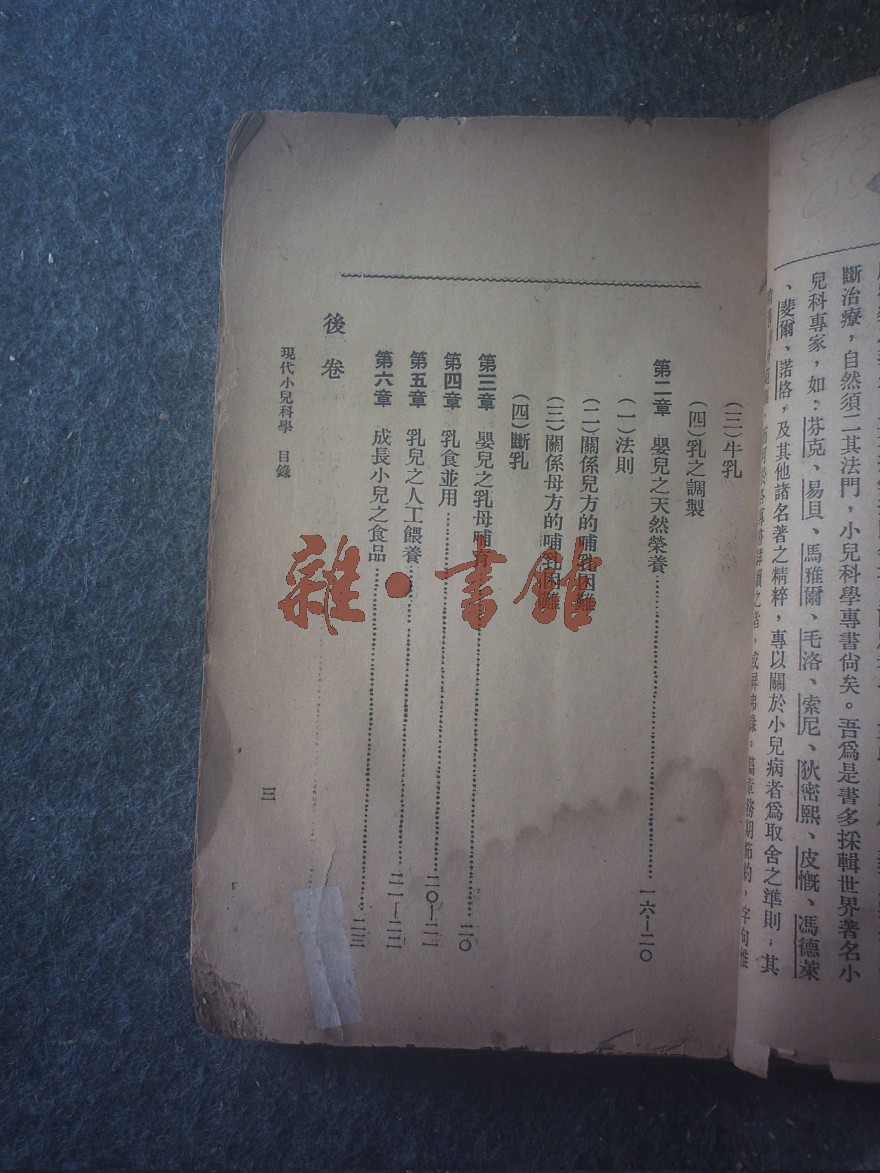 斷治療，自然須二其法門，小兒科學專書尙矣。吾爲是書多採輯世界著名小
兒科專家，如：芬克、易貝、馬雅爾、毛洛、索尼、狄密熙、皮慨、馮德萊
、斐爾、諾格，及其他諸名著之精粹，專以關於小兒病者爲取舍之準則，其
(三)牛乳
(四)乳之調製
第二章 嬰兒之天然榮養 一六－二〇
(一)法則
(二)關係兒方的哺乳困難
(三)關係母方的哺乳困難
(四)斷乳
第三章 嬰兒之乳母哺育 二〇
第四章 乳食並用 二〇－二一
第五章 乳兒之人工餵養 二一－二二
第六章 成長小兒之食品 二三
後卷
現代小兒科學 目錄 三
雜·書館